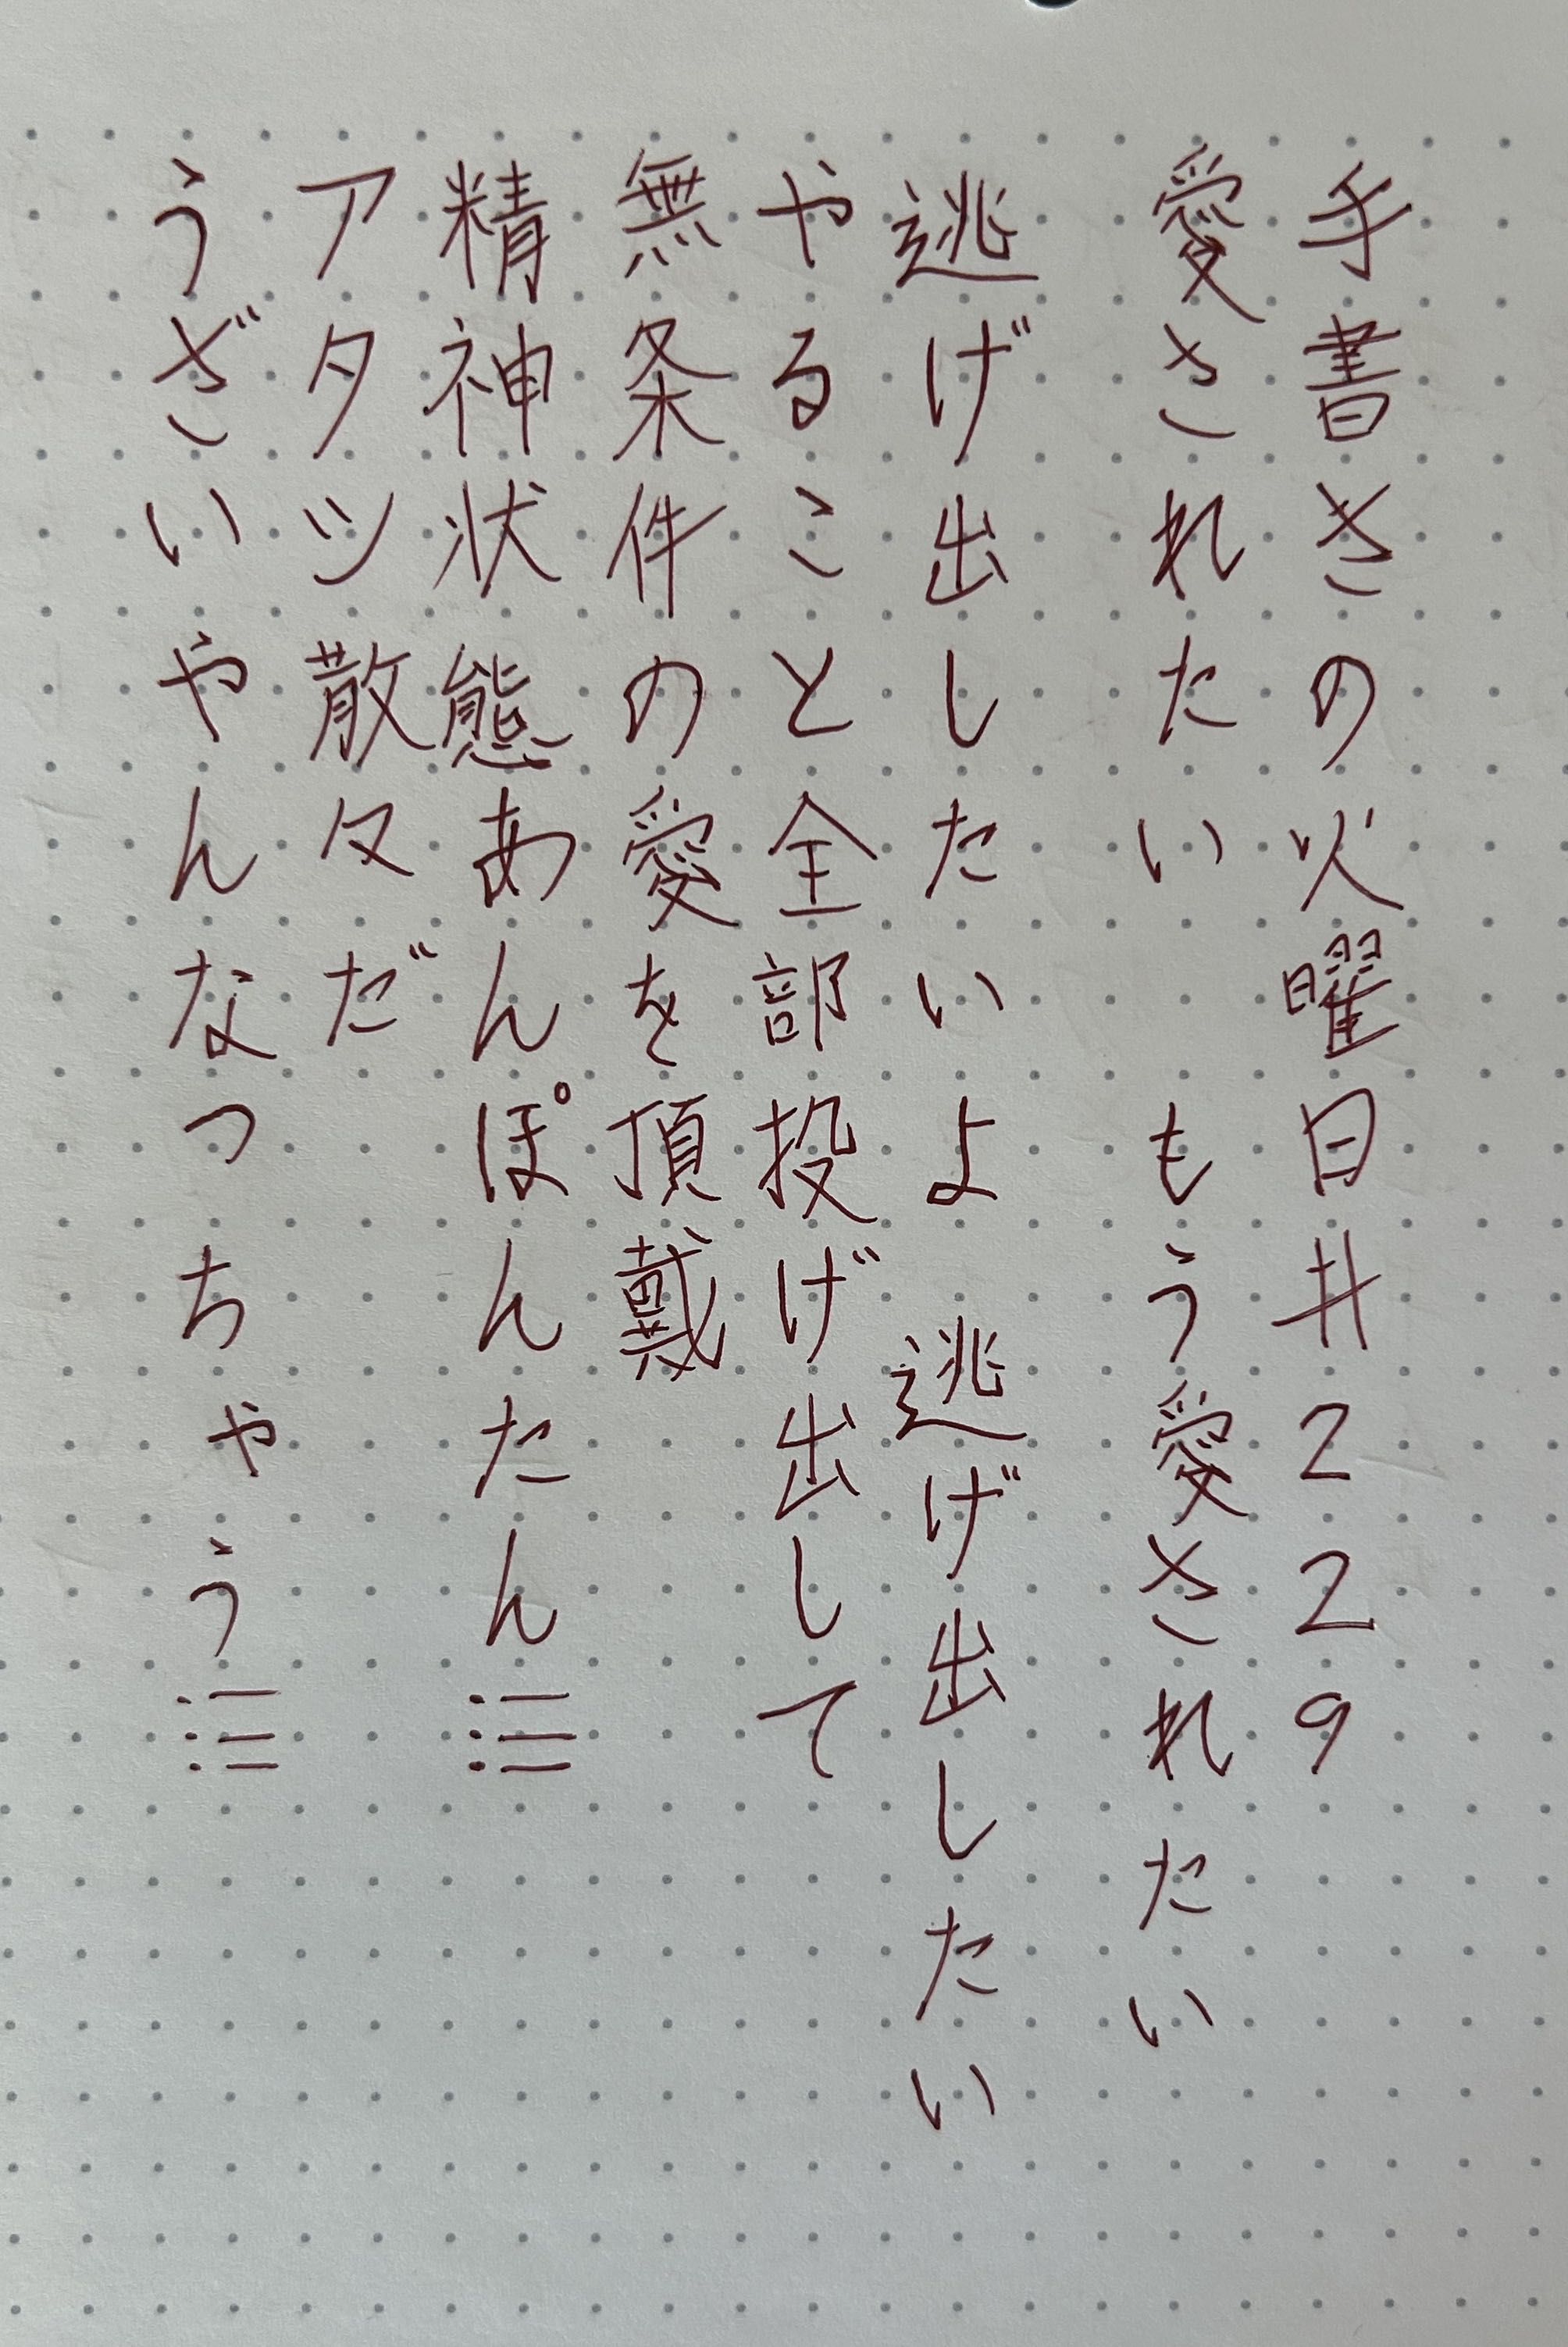 手書きの火曜日#229
愛されたい　もう愛されたい
逃げ出したいよ　逃げ出したい
やること全部投げ出して
無条件の愛を頂戴
精神状態あんぽんたん☷
アタツ散々だ
うざいやんなっちゃう☷